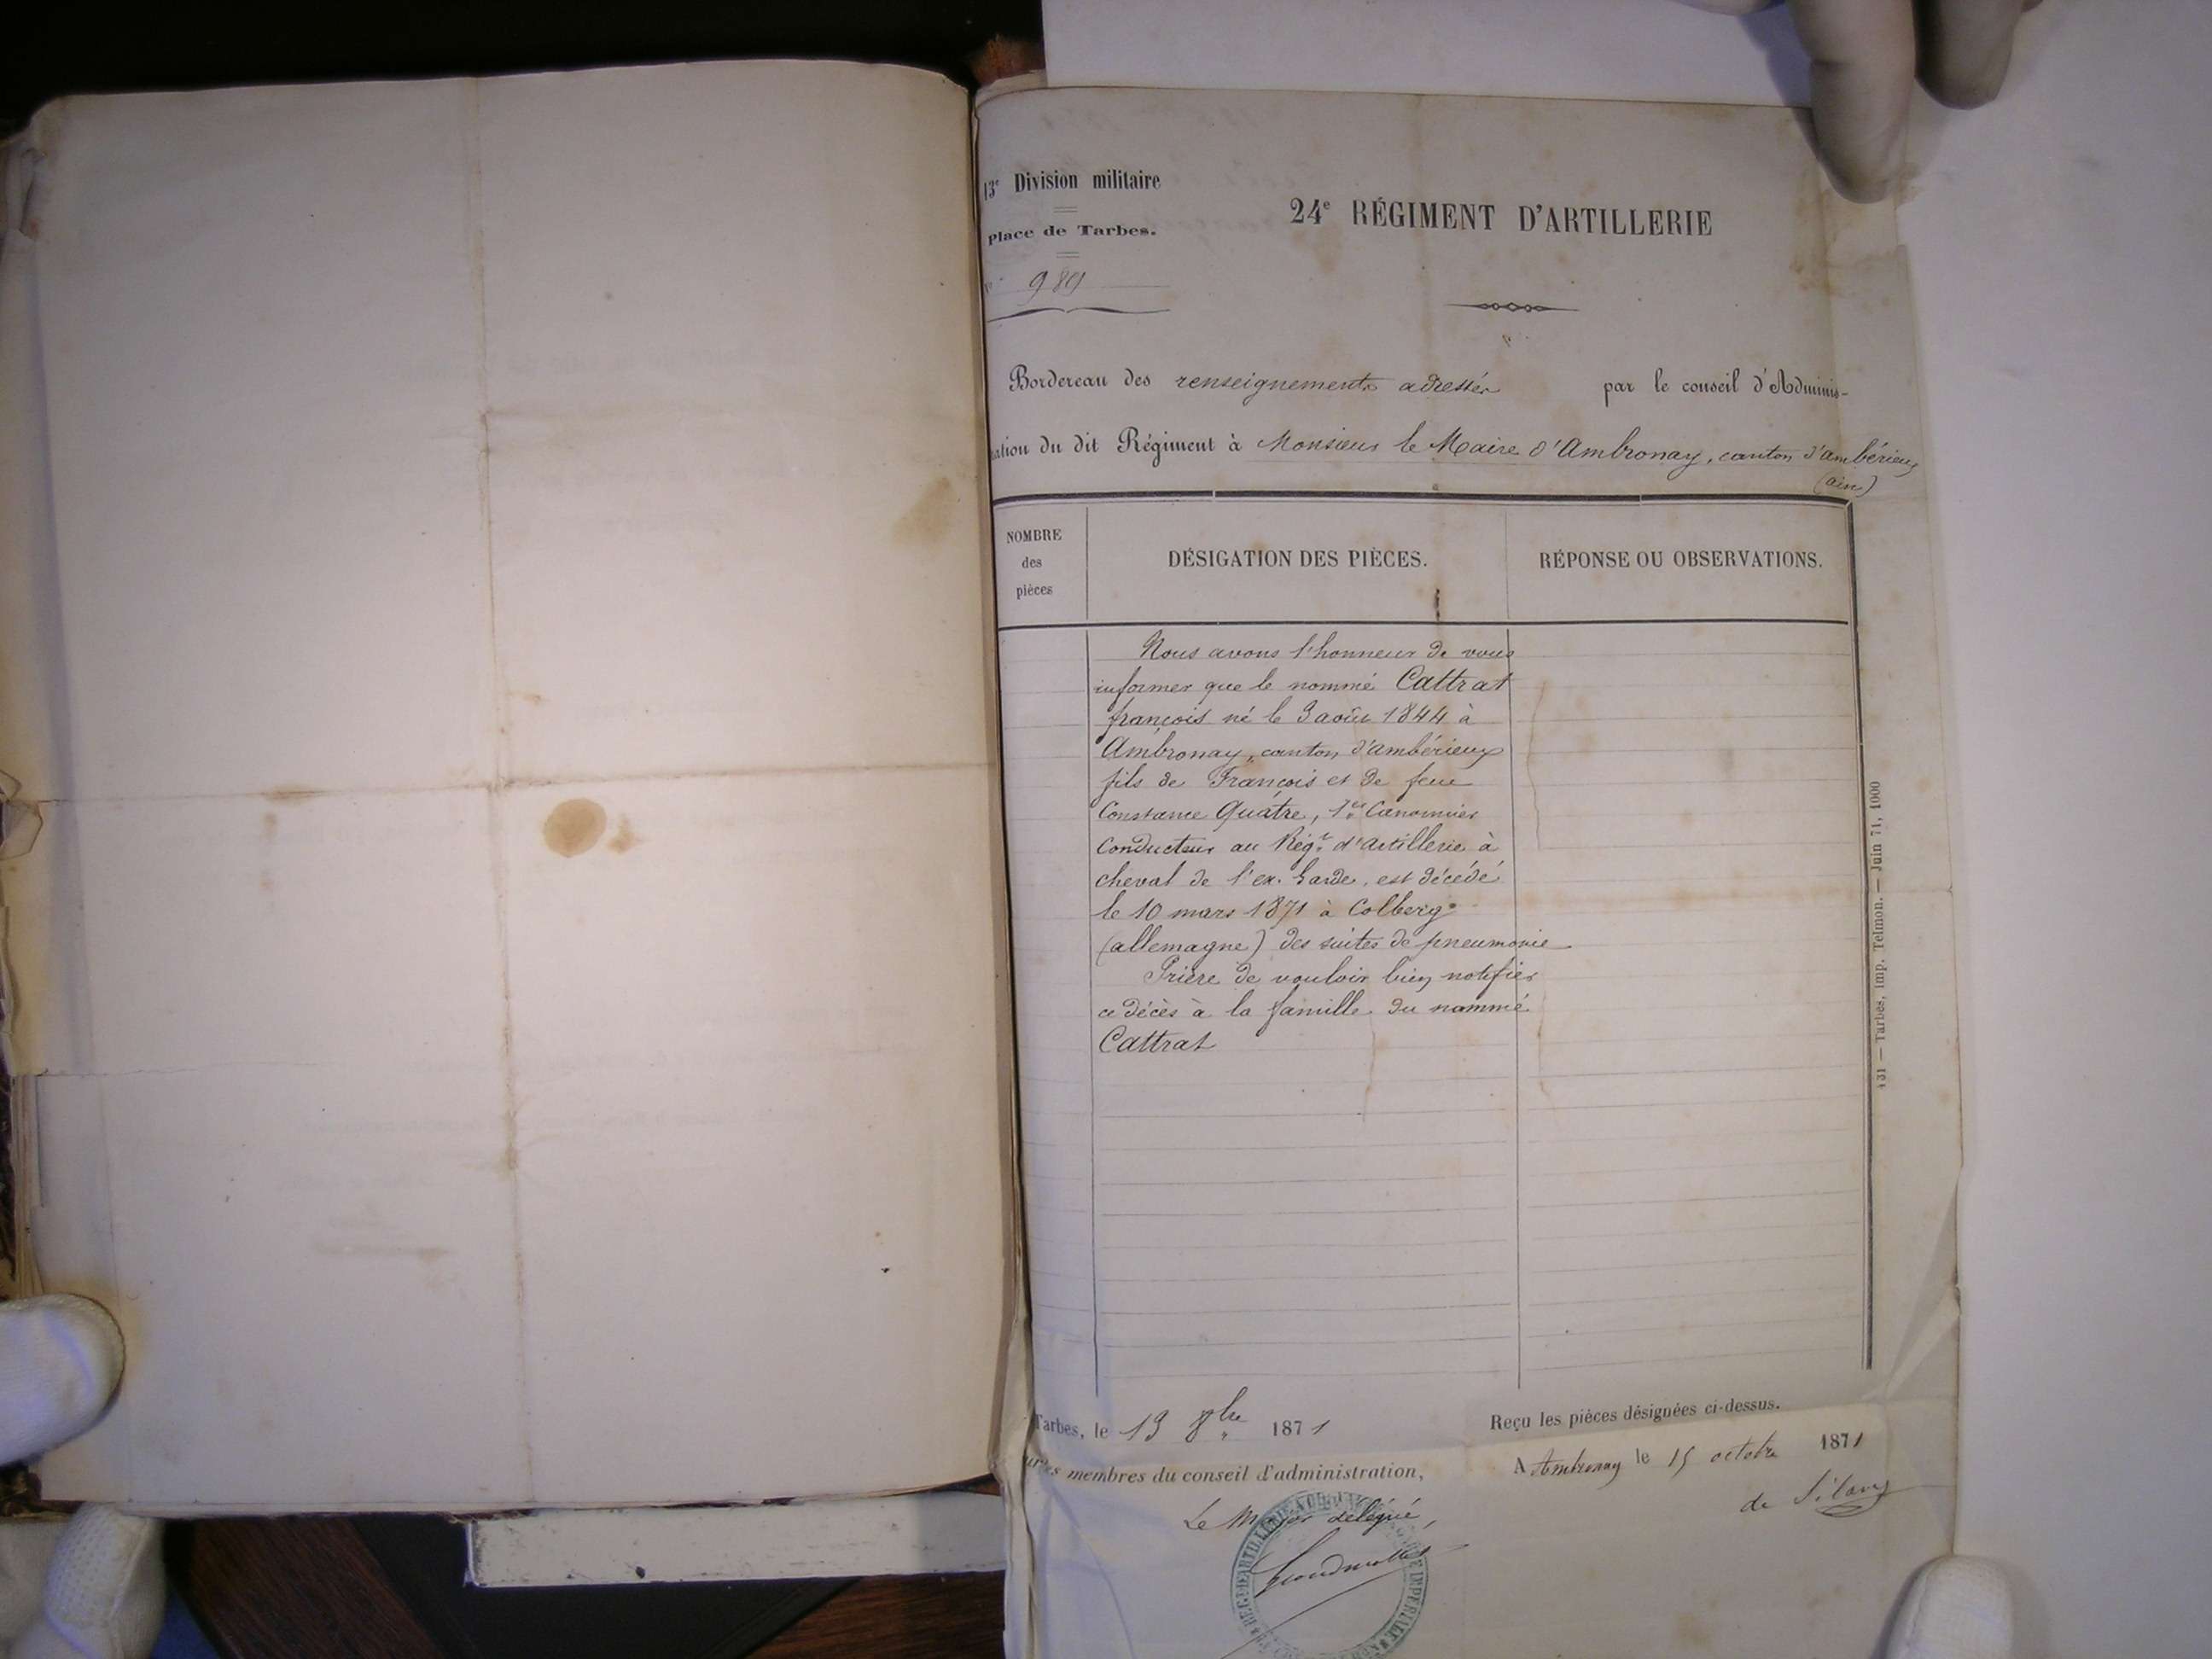 13e Division militaire
Place de Tarbes.
989
24e RÉGIMENT D'ARTILLERIE
Bordereau des renseignements adressés par le conseil d'Adminis-
ration du dit Régiment à Monsieur le Maire d'Ambronay, canton d'ambérieux
(ain)
NOMBRE
des
pièces
DÉSIGATION DES PIÈCES.
RÉPONSE OU OBSERVATIONS.
Nous avons l'honneur de vous
informer que le nommé Cattrat
françois né le 3 août 1844 à
Ambronay, canton d'ambérieux
fils de François et de feue
Constance Quatre, 1er Canonnier
Conducteur au Régt d'artillerie à
cheval de l'ex. Garde, est décédé
le 10 mars 1871 à Colberg
(allemagne) des suites de pneumonie
Prière de vouloir bien notifier
ce décès à la famille du nommé
Cattrat
431 — Tarbes, imp. Telmon. — Juin 71, 1000
Tarbes, le 13 8bre 1871
membres du conseil d'administration,
Le Major délégué,
Reçu les pièces désignées ci-dessus.
A Ambronay le 15 octobre 1871
de